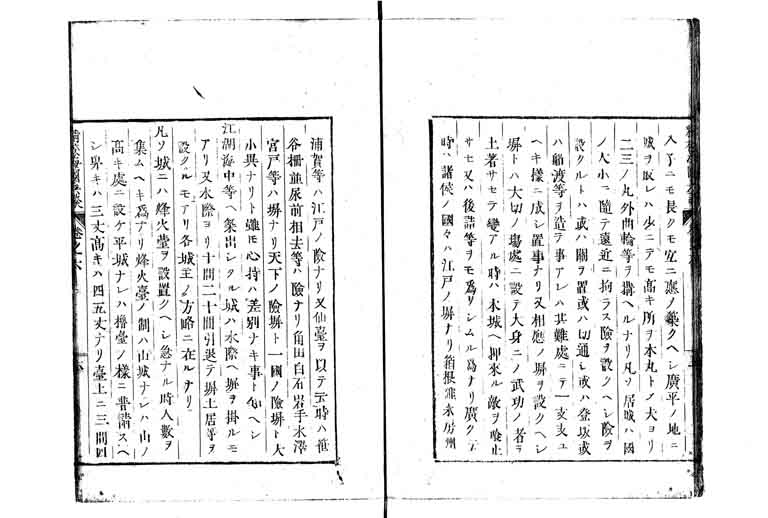 入了ニモ長クモ宜ニ應ノ築クヘシ廣平ノ地ニ
城ヲ取レハ少ニテモ高キ所ヲ本丸トノ夫ヨリ
二三ノ丸外曲輪等ヲ搆ヘルナリ凡ソ居城ハ國
ノ大小ニ隨テ遠近ニ拘ラス險ヲ設クヘシ險ヲ
設クルトハ或ハ關ヲ置或ハ切通シ或ハ登坂或
ハ船渡等ヲ造テ事アレハ其難處ニテ一支支ユ
ヘキ樣ニ成シ置事ナリ又相應ノ塀ヲ設クヘシ
塀トハ大切ノ場處ニ設テ大身ニノ武功ノ者ヲ
土著サセテ變アル時ハ本城ヘ押來ル敵ヲ喰止
サセ又ハ後詰等ヲモ爲サシムル爲ナリ廣ク云
時ハ諸侯ノ國々ハ江戸ノ塀ナリ箱根碓氷房州
浦賀等ハ江戸ノ險ナリ又仙臺ヲ以テ云時ハ笹
谷柵並尿前相去等ハ險ナリ角田白石岩手水澤
宮戸等ハ塀ナリ天下ノ險塀ト一國ノ險塀ト大
小異ナリト雖モ心持ハ差別ナキ事ト知ヘシ
江湖海中等ヘ築出シタル城ハ水際ヘ塀ヲ掛ルモ
アリ又水際ヨリ十間二十間引退テ塀土居等ヲ
設クルモアリ各城主ノ方略ニ在ルナリ
凡ソ城ニハ烽火臺ヲ設置クヘシ急ナル時人數ヲ
集ムヘキ爲ナリ烽火臺ノ制ハ山城ナレハ山ノ
高キ處ニ設ケ平城ナレハ櫓臺ノ樣ニ普請スヘ
シ卑キハ三丈髙キハ四五丈ナリ臺上ニ三間四
海國兵談 卷之六